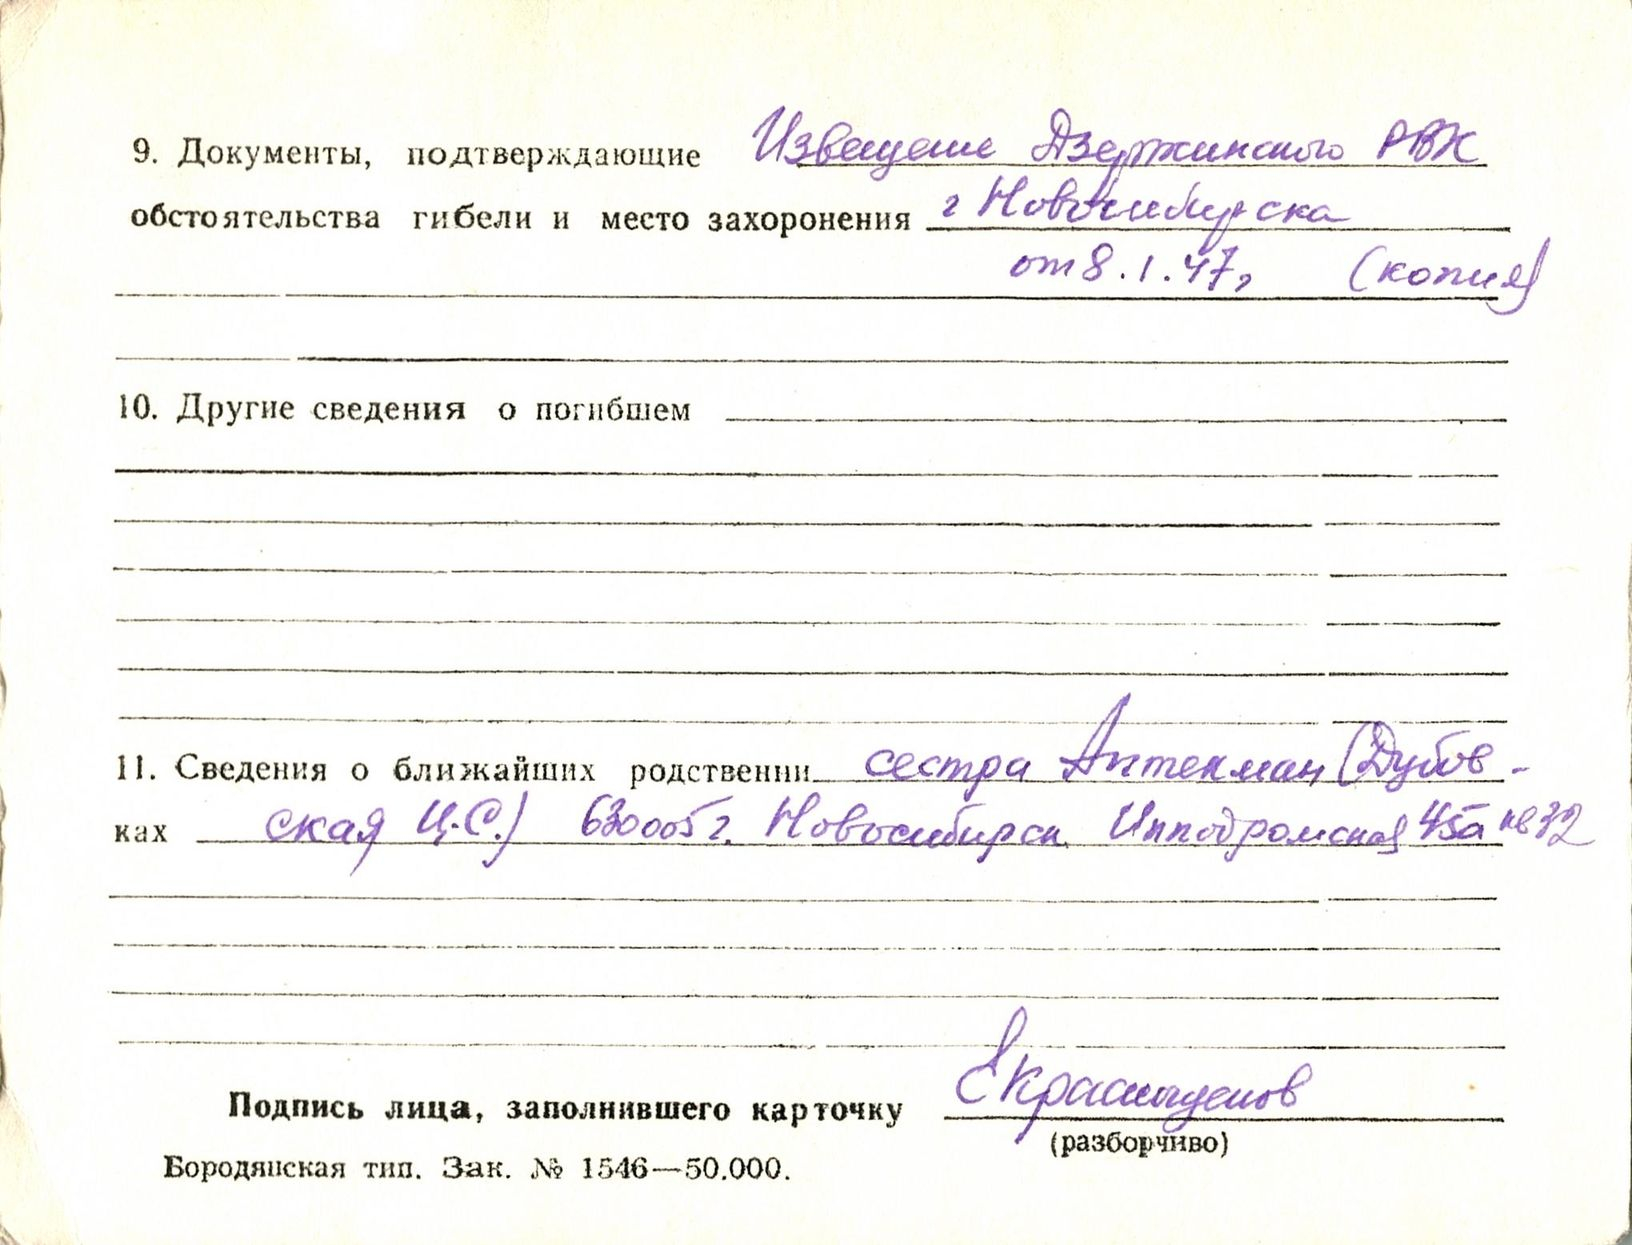 9. Документы, подтверждающие Извещение Дзержинского РВК
обстоятельства гибели и место захоронения г Новосибирска
от 8.1.47г (копия)
10. Другие сведения о погибшем
11. Сведения о ближайших родственни сестра Аптекман (Дубов-
ках ская Ц.С.) 630005 г. Новосибирск Ипподромская 45а кв 32
Подпись лица, заполнившего карточку
(разборчиво)
Бородянская тип. Зак. № 1546—50.000.